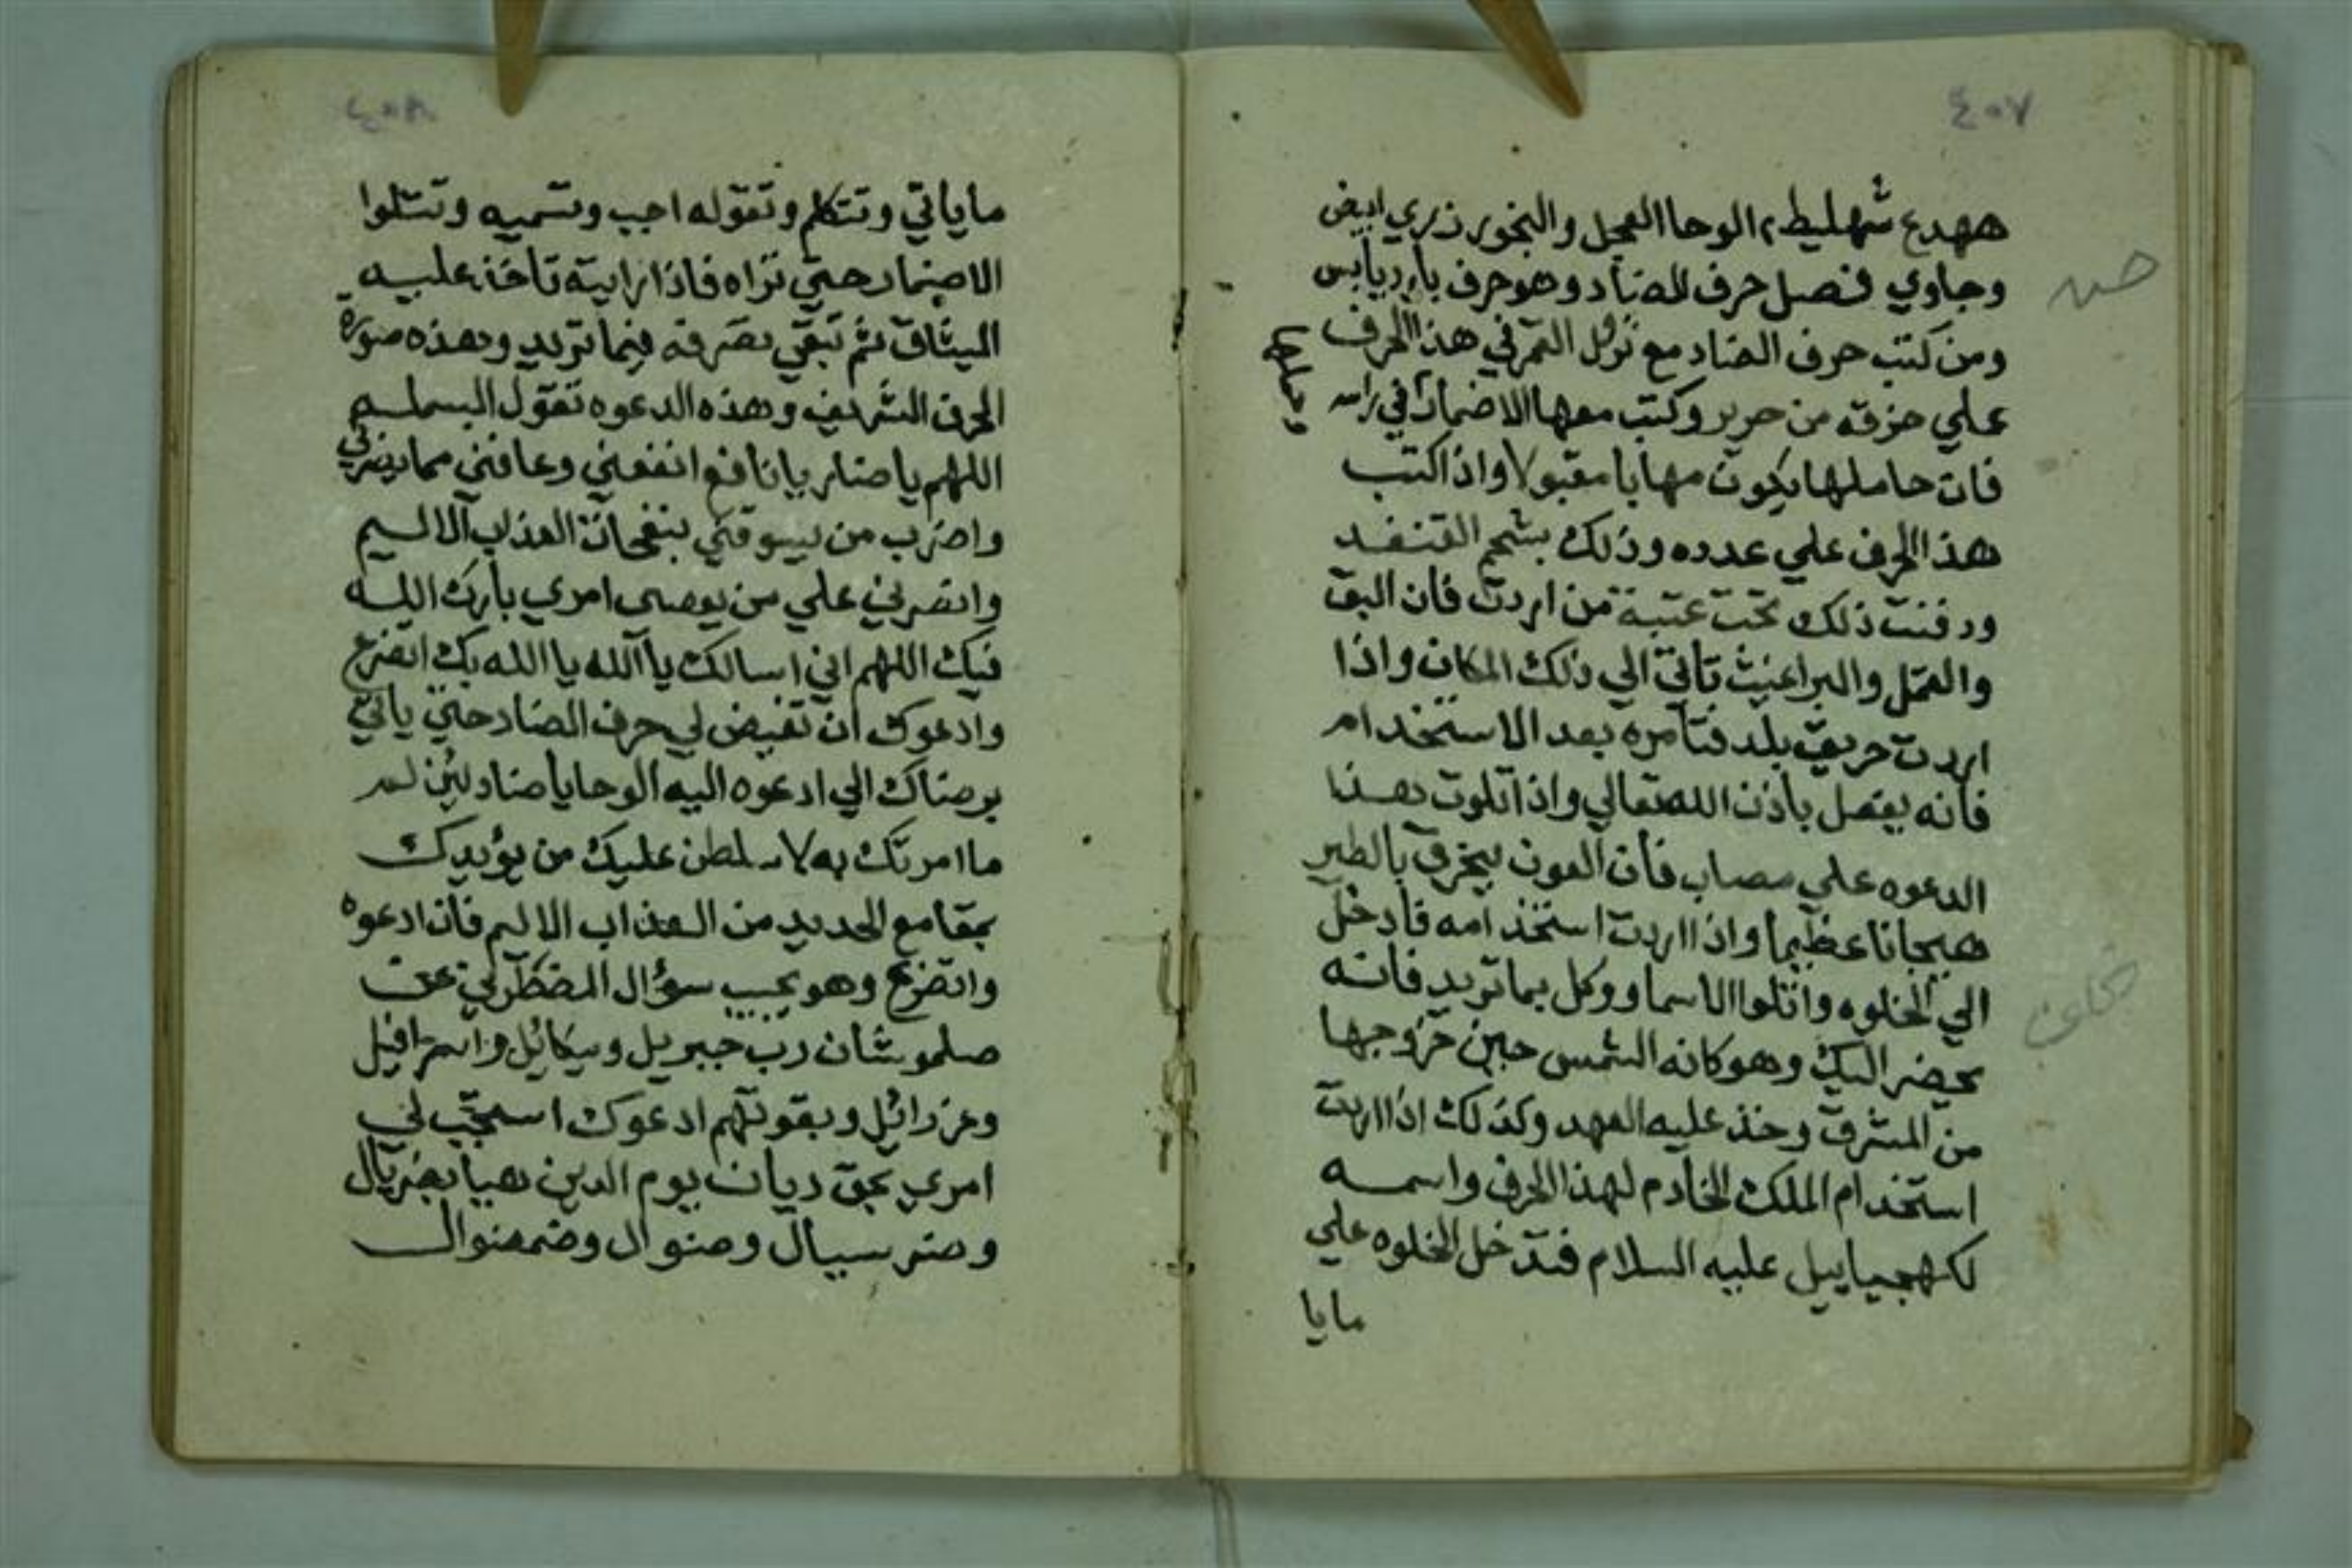 ٤٠٧
ههدع شهليط ٢ الوحا العجل والبخور زري ابيض
وجاوي فصل حرف للضاد وهو حرف بارد يابس
ومن كتب حرف الضاد مع نزول القمر في هذا الحرف
علي خرقه من حرير وكتب معها الاضمار في راسه
وحملها
فان حاملها يكون مهابا مقبولا واذا كتب
هذا الحرف علي عدده وذلك بشحم القنفد
ودفنت ذلك تحت عتبة من اردت فان البق
والقمل والبراغيث تاتي الي ذلك المكان واذا
اردت حريق بلد فتامره بعد الاستخدام
فانه يفعل باذن الله تعالي واذا تلوت هذا
الدعوه علي مصاب فان العون يحرق بالطير
هيجانا عظيما واذا اردت استخدامه فادخل
الي الخلوه واتلوا الاسما ووكل بما تريد فانه
يحضر اليك وهو كانه الشمس حين خروجها
من المشرق وخذ عليه العهد وكذلك اذا اردت
استخدام الملك الخادم لهذا الحرف واسمه
لكهجياييل عليه السلام فتدخل الخلوه علي
مايا
٤٠٨
ماياتي وتتكلم وتقوله اجب وتسميه وتتلوا
الاضمار حتي تراه فاذا رايته تاخذ عليه
الميثاق ثم تبقي تصرفه فيما تريد وهذه صورة
الحرف الشريف وهذه الدعوه تقول البسمله
اللهم يا ضار يا نافع انفعني وعافني مما يضرني
واضرب من يسوقني بنفحات العذاب الاليم
وانصرني علي من يعصي امري بارك الله
فيك اللهم اني اسالك يا الله يا الله بك اتضرع
وادعوك ان تقيض لي حرف الضاد حتي ياتي
برضاك الي ادعوه اليه الوحا يا ضاد لئن لم
ما امرتك به لاسلطن عليك من يؤيدك
بمقامع الحديد من العذاب الاليم فان ادعوه
واتضرع وهو يجيب سؤال المضطر لي عن
صلموشان رب جبريل وميكائل واسرافيل
وعزرائل وبقوتهم ادعوك استجب لي
امري بحق ديان يوم الدين هيا بضريال
وضرسيال وضنوال وضمضوال